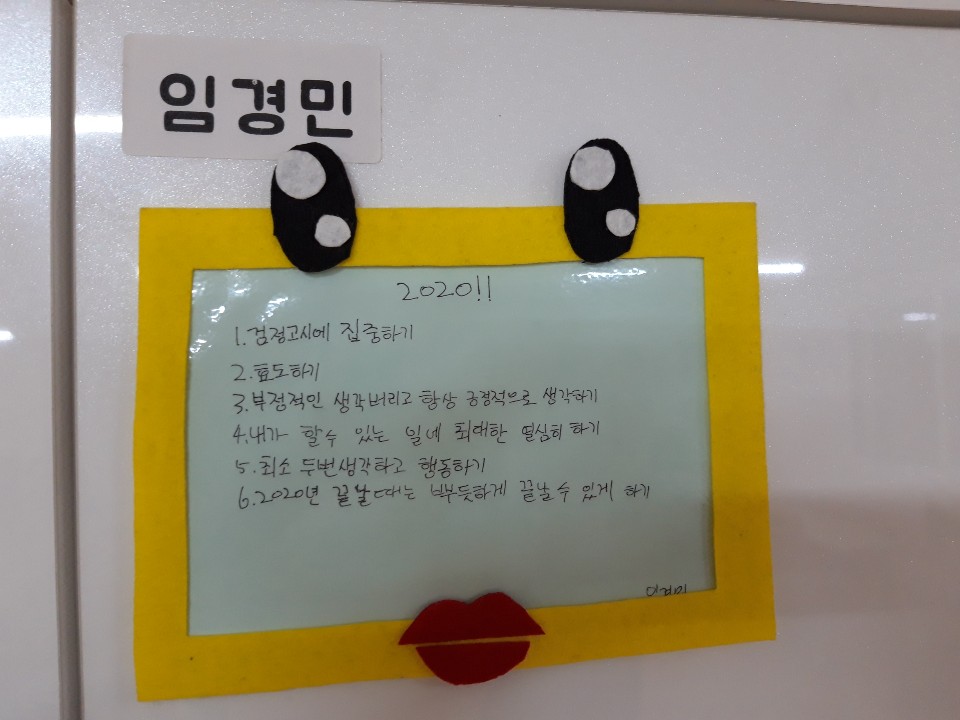 임경민
2020!!
1. 검정고시에 집중하기
2. 효도하기
3. 부정적인 생각버리고 항상 긍정적으로 생각하기
4. 내가 할수 있는 일네 최대한 열심히 하기
5. 최소 두번생각하고 행동하기
6. 2020년 끝날때는 뿌듯하게 끝날수 있게 하기
임경민